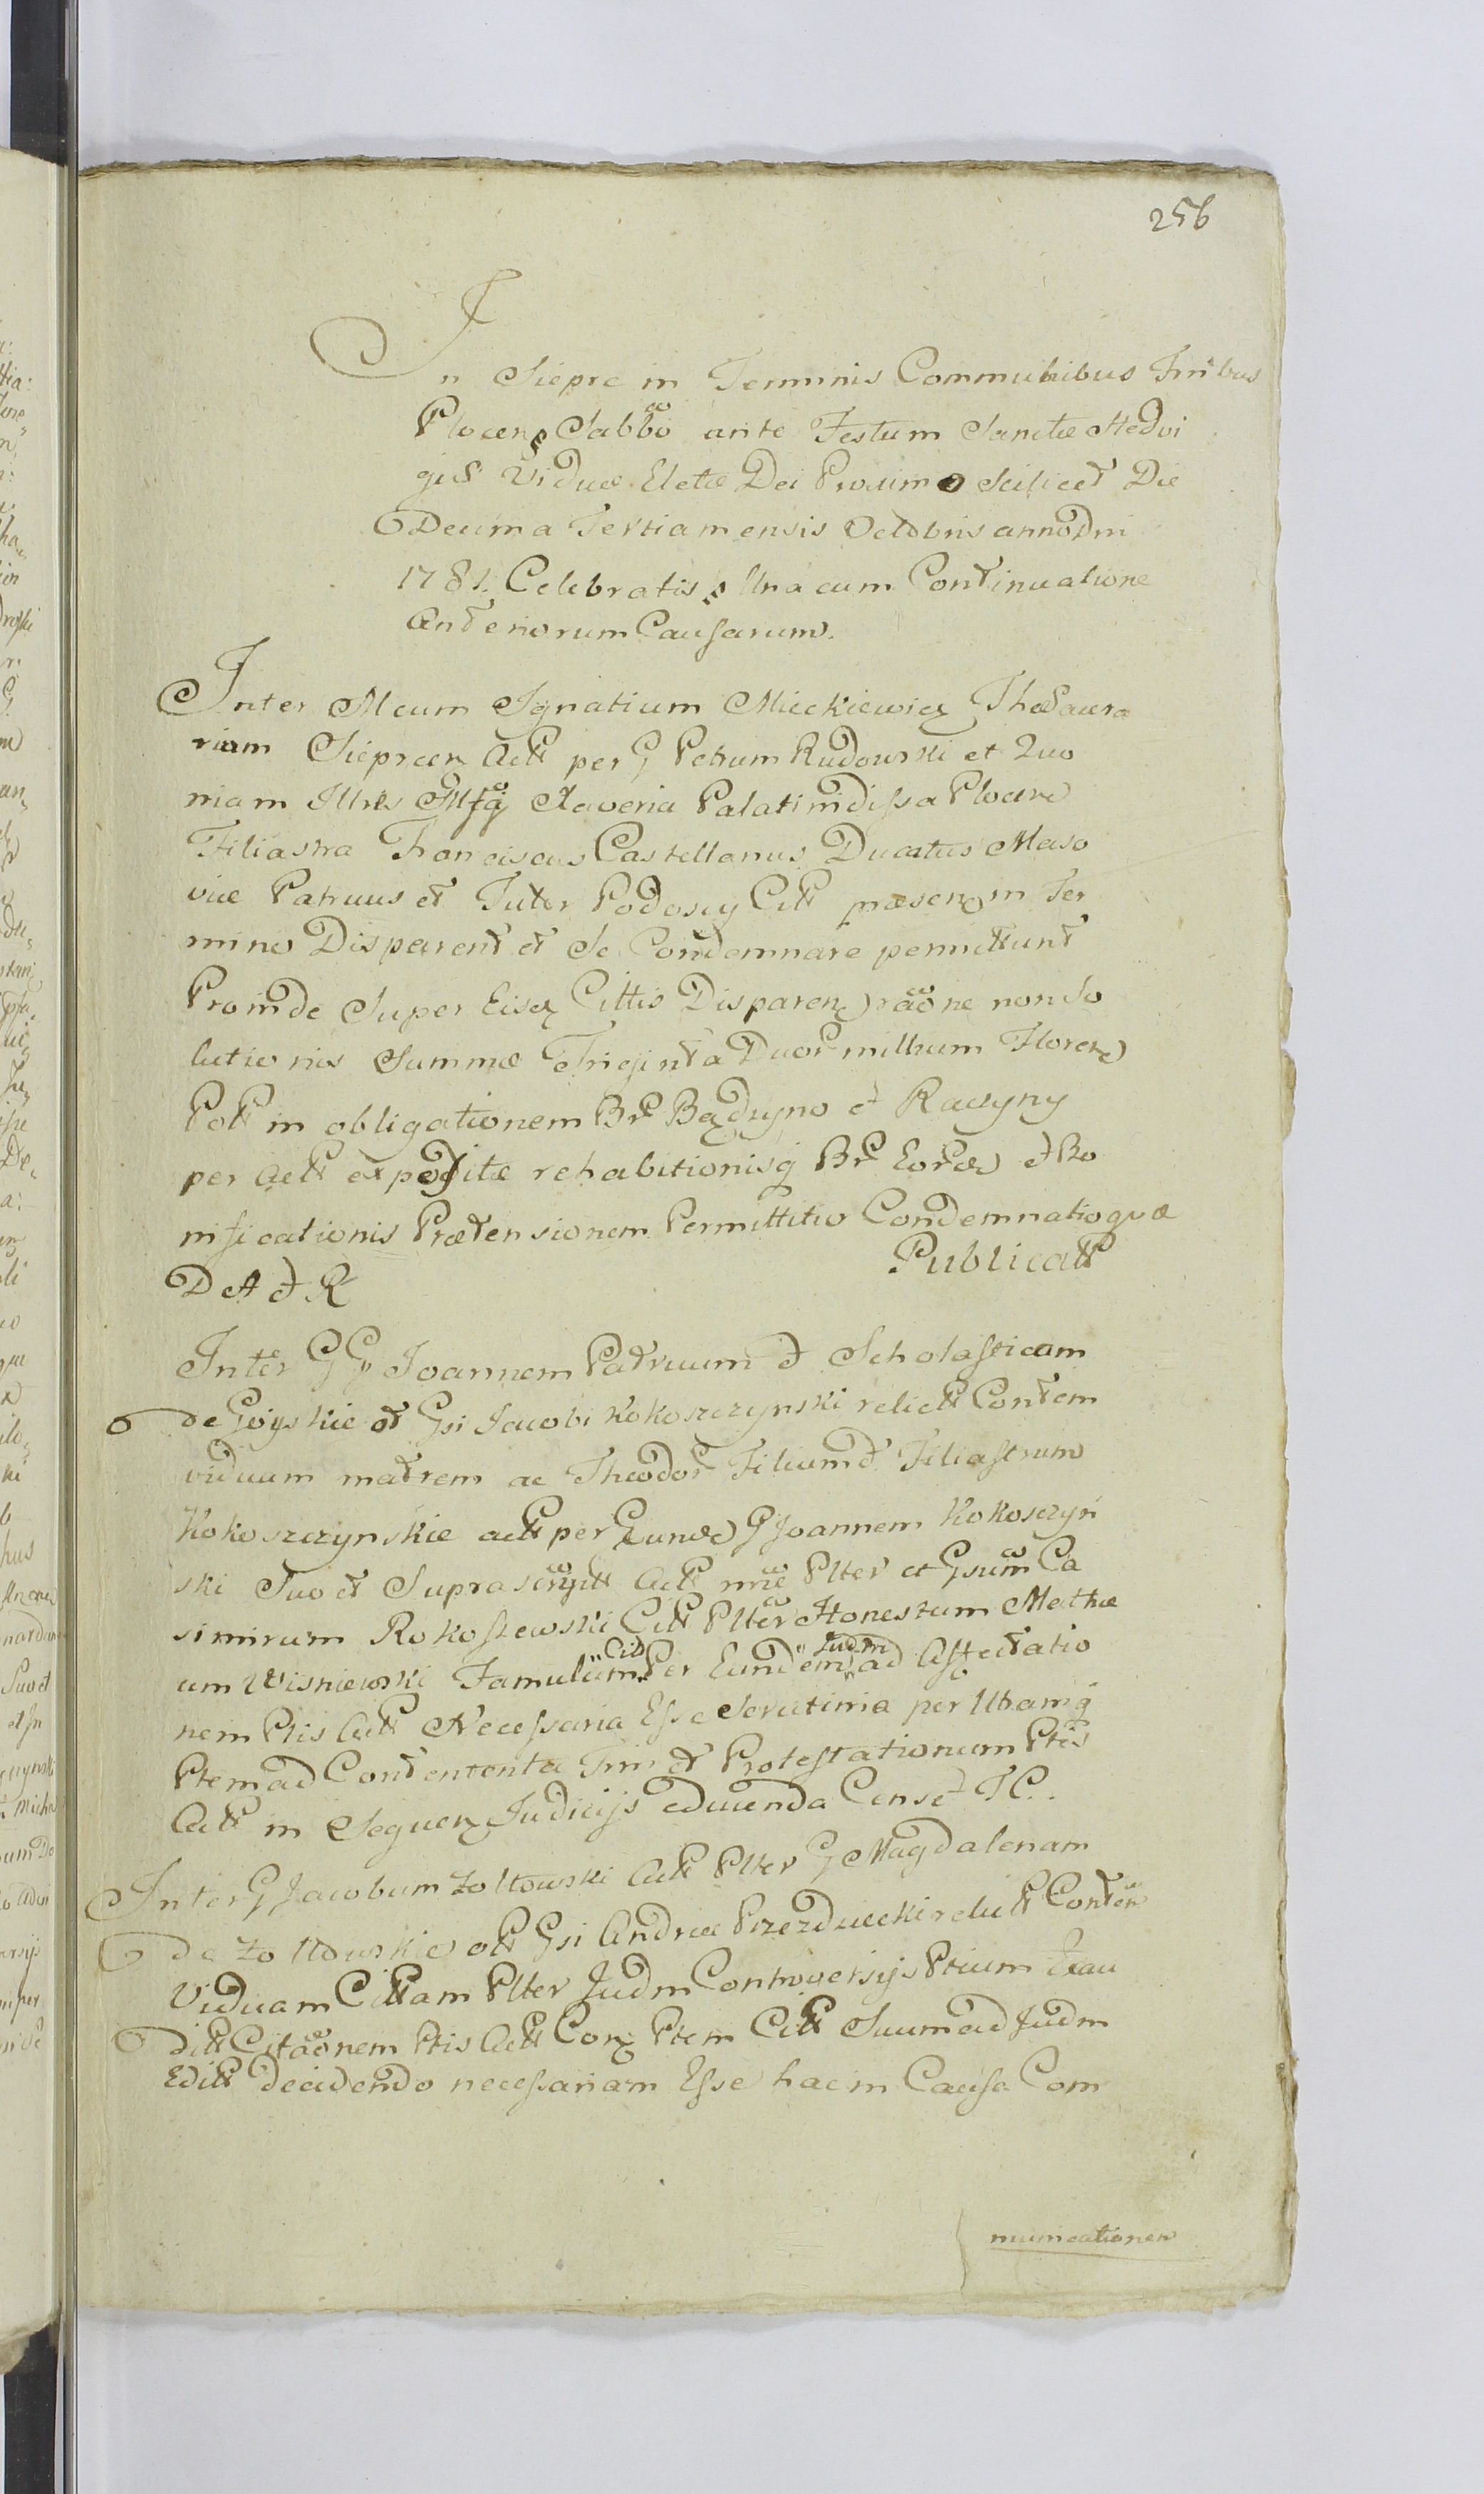 256
In Sieprc in Terminis Communibus Trribus
Plocens Sabbo ante Festum Sanctæ Hedvi
gis Viduæ Eletæ Dei Proximo Scilicet Die
Decima Tertia mensis Octobris anno Dni
1781. Celebratis, Una cum Continuatione
Anteriorum Causarum.
Inter Mcum Ignatium Mickiewicz Thesaura
rium Sieprcen Actt per G Petrum Rudowski et Quo
niam Illris Mfq Xaveria Palatinidissa Plocen
Filiastra Franciscus Castellanus Ducatus Maso
viæ Patruus et Tutor Podoscy Citt præsen in Ter
mino Disparent et Se Condemnare permittunt
Proinde Super Eisq Cittis Disparen raōne non So
lutionis Summæ Triginta Duor millium Floren
Poll in obligationem Br Bądzyno et Raczyny
per Actt expositæ rehabitionisq Br Eor et Bo
nificationis Prætensionem Permittitur Condemnatio quæ
Publicatt
D A et R
Inter G G Joannem Patruum et Scholasticam
de Goyskie ol Gsi Jacobi Kokoszczynski relictt Contem
viduam matrem ac Theodor Filium et Filiastrum
Kokoszczynskie actt per Eund G Joannem Kokosczyń
ski Suo et Suprascriptt Actt nnie Plter et Gsum Ca
simirum Rokoszewski Citt Plter Honestum Mathæ
um Wisniewski Famulum Cit Per Eundem Judm ad Affectatio
nem Ptis Actt Necessaria Esse Scrutinia per Utramq
Ptem ad Contententa Trm et Protestationum Ptis
Actt in Sequen Judicijs educenda Censet J C.
Inter G Jacobum Zołtowski Actt Plter G Magdalenam
de Zołtowskie ol Gsi Andreæ Przezdzieckie relictt Conten
Viduam Cittam Plter Judm Controversijs Ptium Exau
ditt Citaōnem Ptis Actt Con Ptem Citt Suum ad Judm
Editt decidendo necessariam Esse hac in Causa Com
municationem